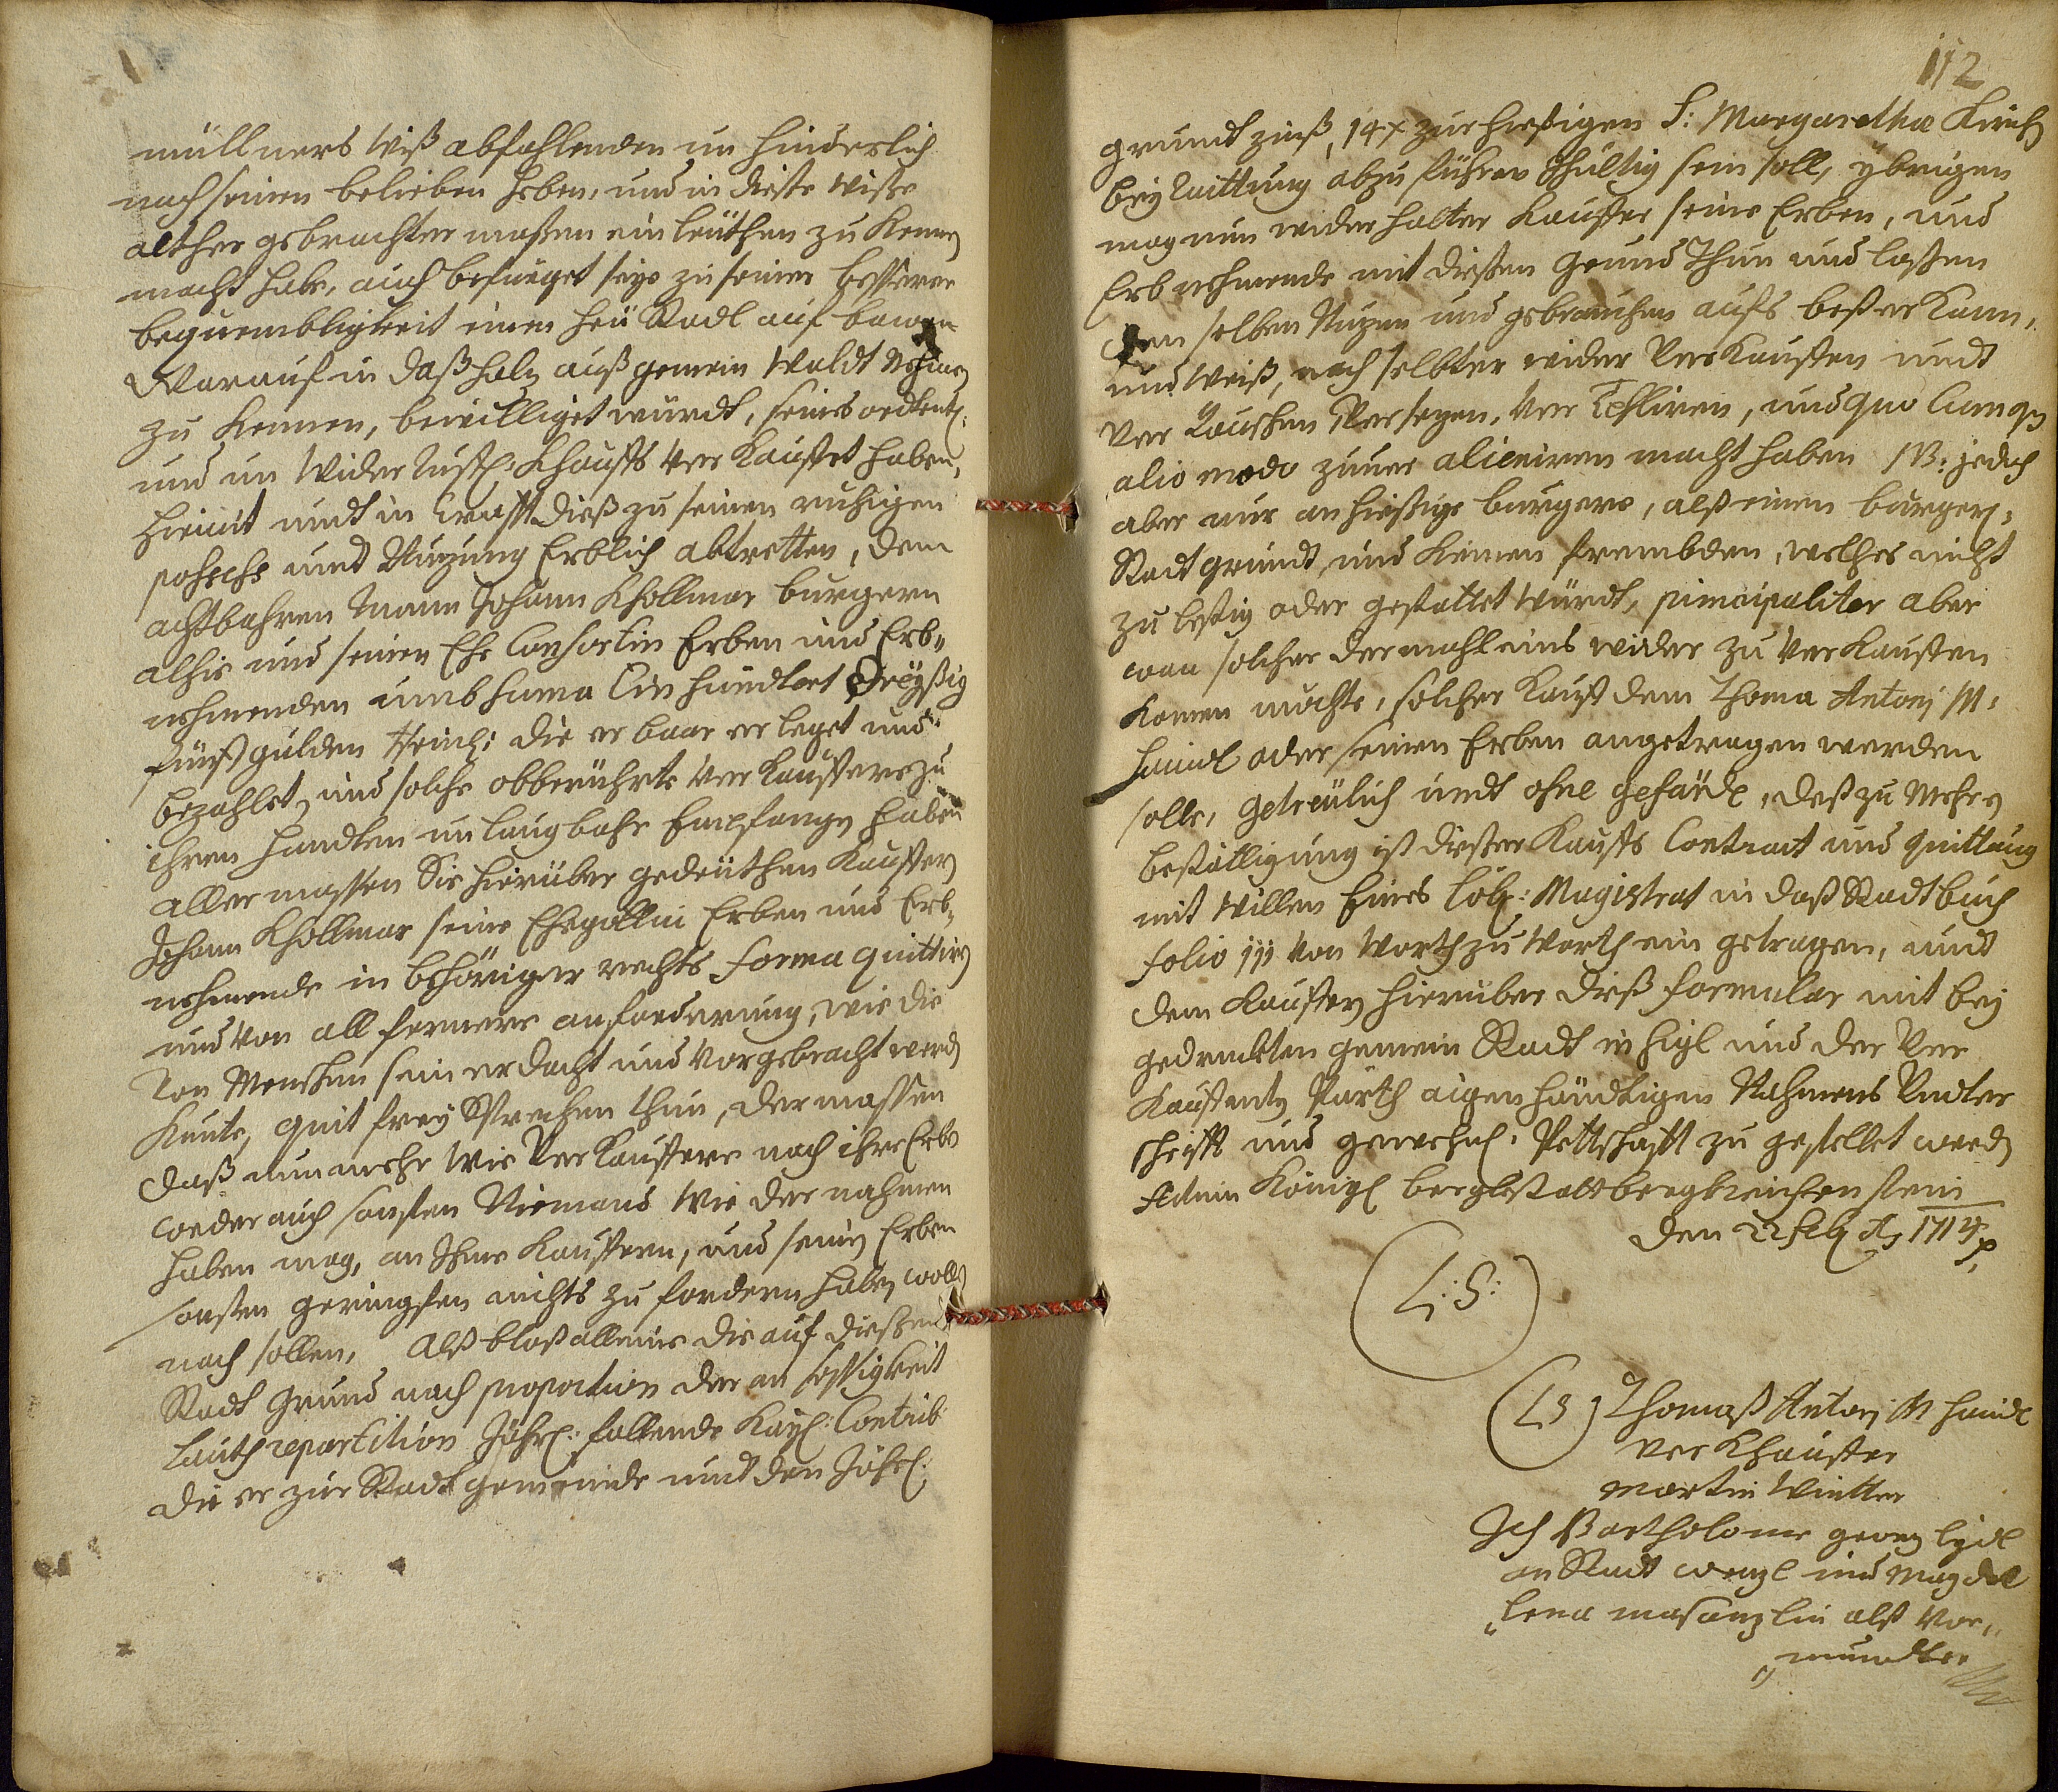 müllners Wiß abfahlenden un hinderlich
nach seinen belieben heben, und in dieste Wisse
althergebrachter maßen ein leüthen zu Kenen
macht habe, auch befueget seye zu seiner bessern
bequembligkeit einen heü Stadl auf bawen
Worauf in daß holz auß gemein Waldt nehmen
zu Kennen, bewilliget würdt, seines ordentl:
und un Widerrueffl: Khauffs Ver Kauffet haben,
hiemit undt in Crafft dieß zu seinen ruhigen
possehs undt Nuzung Erblich abtretten, dem
achtbahren Mann Johann Khollmar burgern
alhie und seinen Ehe Consortin Erben und Erb„
nehmenden umb suma Ein hundtert Dreyßig
fünff gulden Rheinl: die er baar er leget und
bezahlet, und solche obberührte Verkauffere zu
ihren handten un laugbahr Empfangen haben
aller massen Sie hierüber gedeüthen Kauffer
Johann Khollmar seine Ehegattin Erben und Erb„
nehmende in behöriger rechts forma quittiren
und Von all fernere anforderung, wie die
Von Menschen sein erdacht und Vorgebracht werden
Kente, quit freÿ Sprechen thun, der massen
daß nunmehr Wir Verkauffere noch ihre Erben
weder auch sonsten Niemand Wie der nahmen
haben mag, an Ihme Kauffern, und seinen Erben
sonsten geringsten nichts zu fordern haben wolle
noch sollen, Alß bloß alleine die auf dießen
Stadt Grund nach proportion der an sessigkeit
Lauth repartition Jährl: fallende Kayl: Contrib:
die er zur Stadt gemeinde undt den Jährl:
112
grundt zinß, 14 x zur hießigen S: Margaretha Kirch
beÿ Quittung abzu führen schultig sein soll, ÿbrigens
mag nun wider holter Kauffer seine Erben, und
Erb nehmende mit dießen Grund Thun und laßen
den selben Nuzen und gebrauchen aufs beßer Kann,
und Weiß, nach selbter wider Ver Kauffen undt
Ver Tauschen Versezen, Ver Testiren, und quo cunque
alio modo zuver alieniren macht haben NB: jedoch
aber nur an hießige burgere, alß einen burgerl:
Stadt grundt, und Keinen frembden, welches nicht
zu leßig oder gestattet Würdt, principaliter aber
wan solcher dermahleins wider zu Ver Kauffen
Komen mochte, solcher Kauff dem Thoma Antonj M:
haindl oder seinen Erben angetragen werden
solle, getreülich undt ohne gefärde, deß zu Mehrer
bestättigung ist dießer Kauffs Contract und quittung
mit Willen Eines löbl: Magistrat in daß Stadt buch
folio 111 Von Worth zu Worth ein getragen, undt
dem Kauffer hierüber dieß formular mit beÿ
gedruckten gemein Stadt in Sigl und der Ver
Kauffenten Parth aigen händtigen Nahmens Undter
schrifft und gewehnl: Pettschafft zu gestellet werden
Actum Königl bergkstatt bergkreichenstein
den 22 feb: Ao 1714 p.
(L: S:)
(LS) Thomaß Antonj M haindl
Ver Khauffer
Martin Wintter
Ich Bartholome georg
an Stadt wenzl und Magda
„lena alß Vor„
„mundter